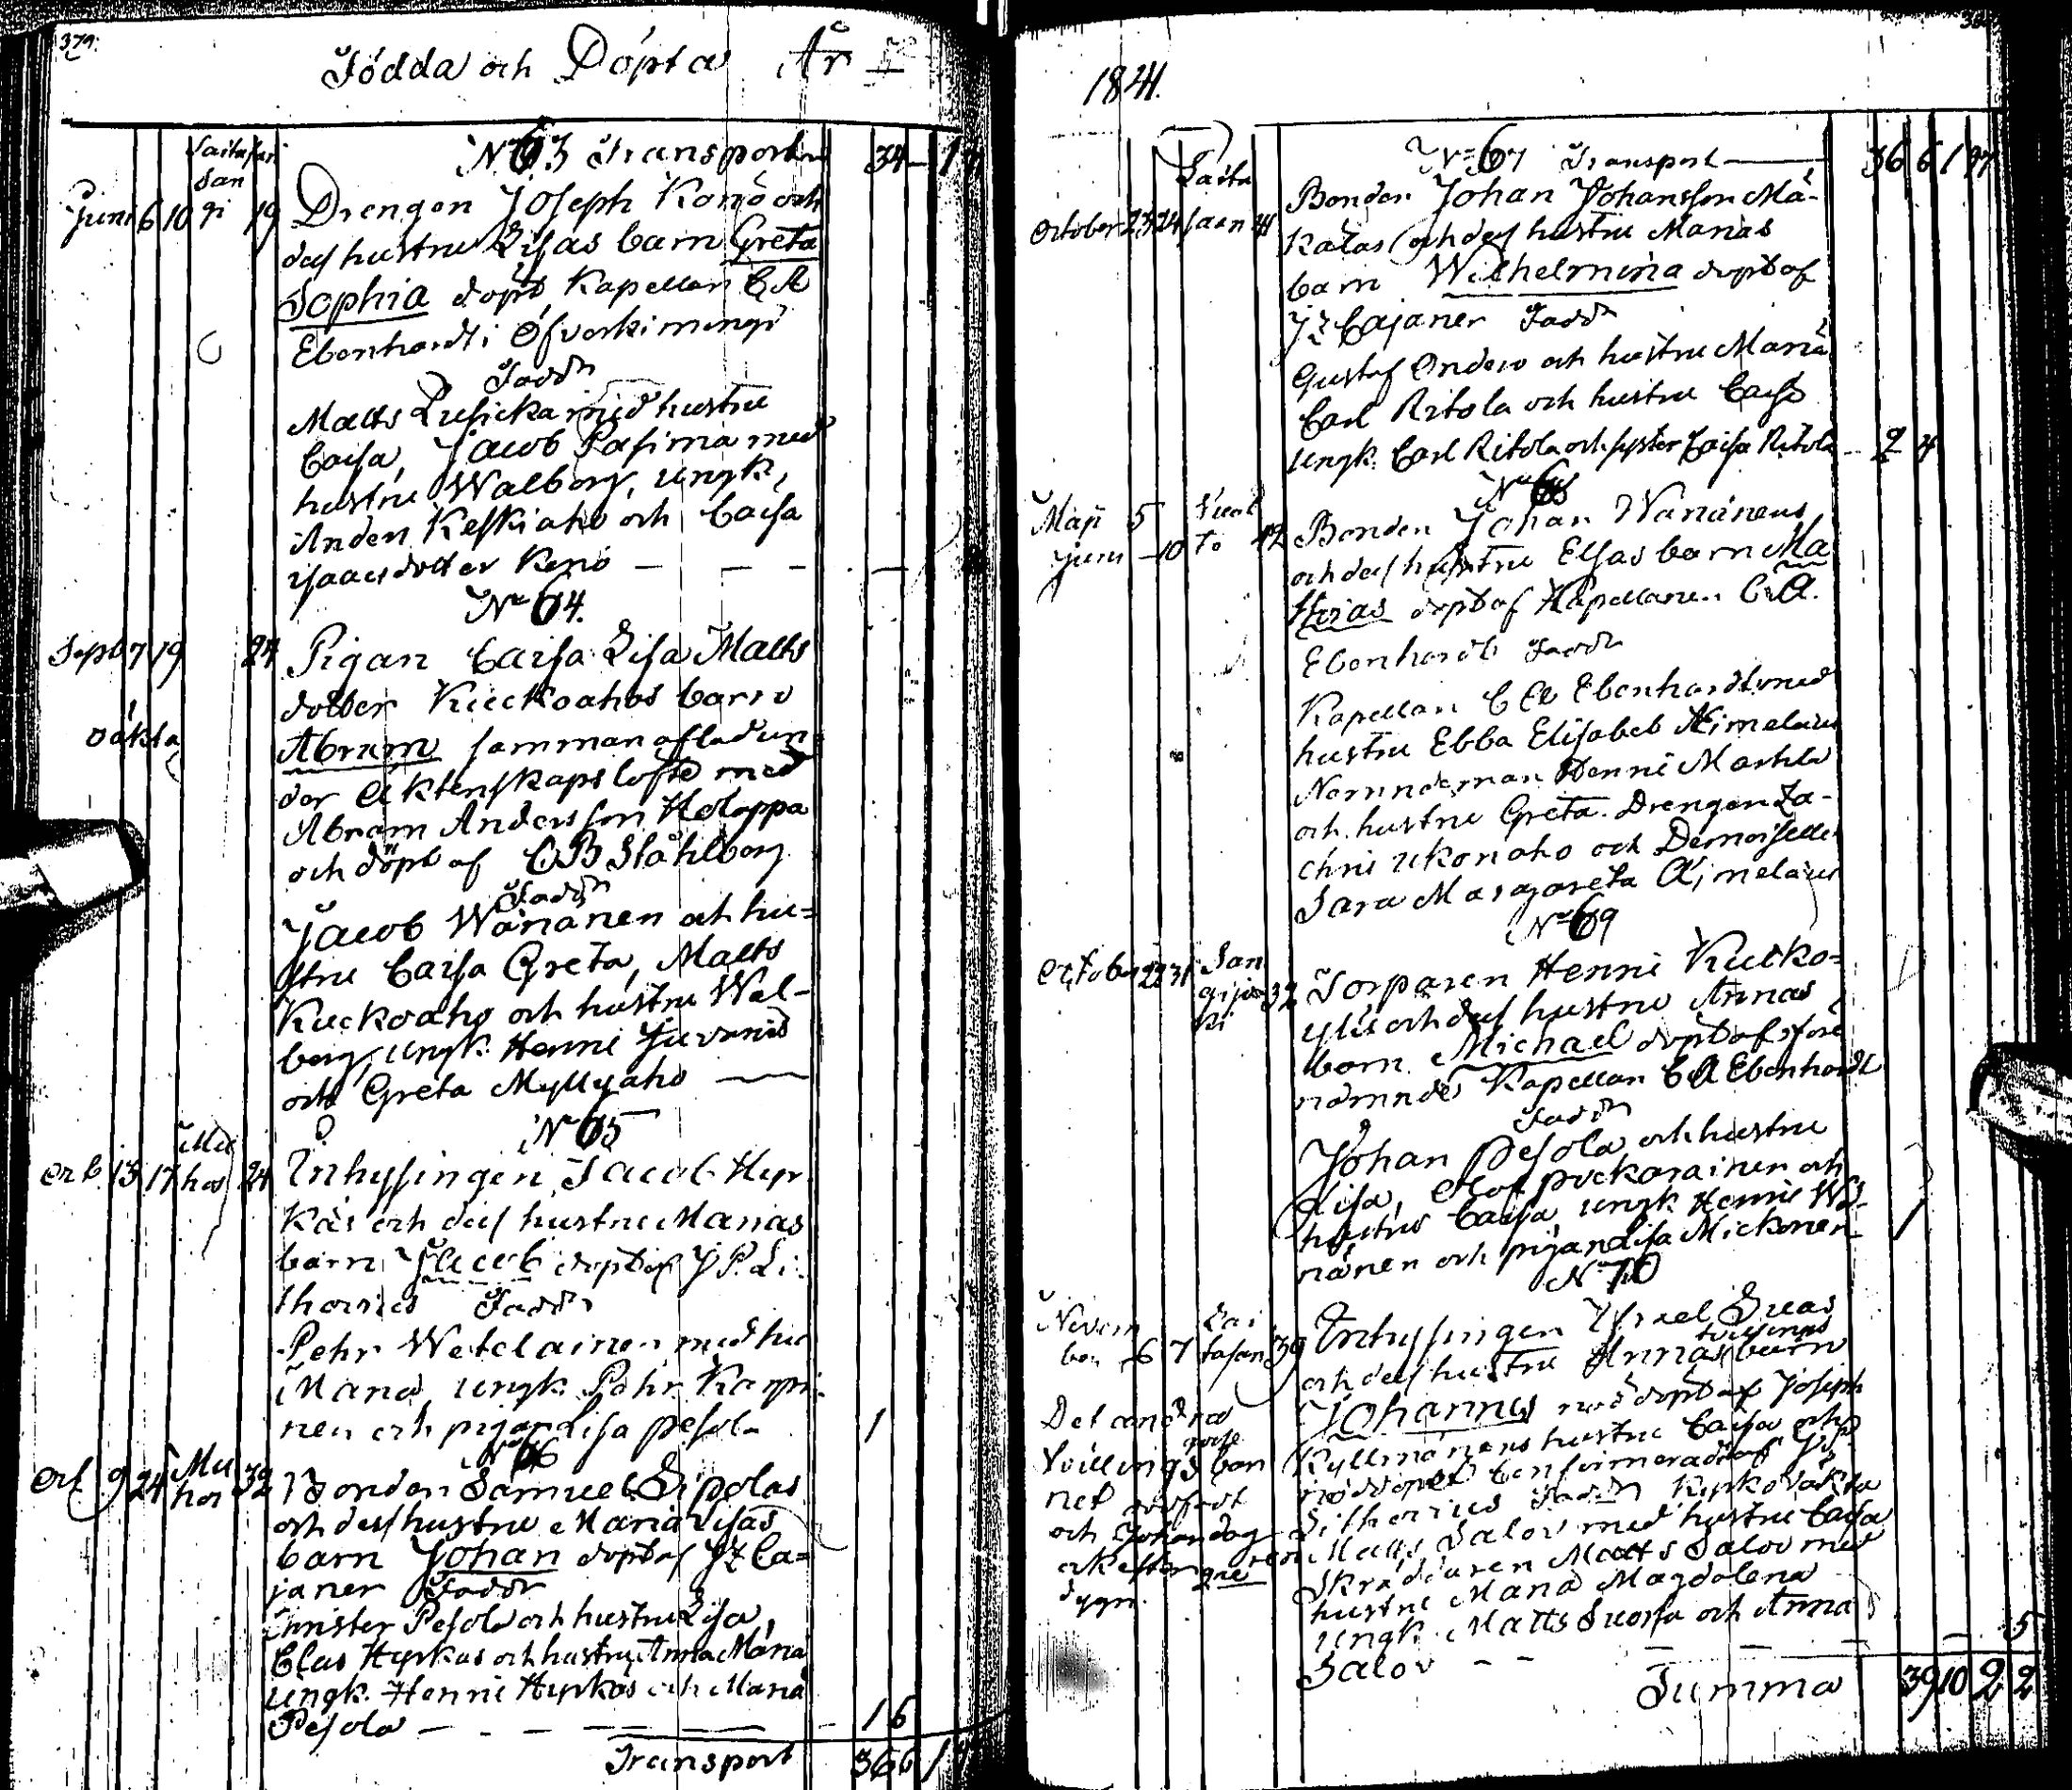 379.
Födda och Döpta År
Saita jär
San
Juni 6 10 gi 19
N. 63 Transport 34
Drengen Joseph Konö och
dess hustru Lisas barn Greta
Sophia döpt Kapellan C A
Ebenhardt i Öfverkimingi
Fadd
Matts med hustru
Caisa, Jacob Pasima med
hustru Walborg, ungk,
Anders Keskiaho och Caisa
Isaacsdotter Kenö
No 64.
Sept 7 19 24 Pigan Caisa Lisa Matts
dotter Kuckoahos barn
oäkta
Abram sammanaflad un-
der Äktenskapslöfte med
Abram Andersson Holappa
och döpt af C B Ståhlberg
Fadd
Jacob Wänänen och hu-
stru Caisa Greta, Matts
Kuckoaho och hustru Wal-
borg, ungk. Henric Juvonis
och Greta Myllyaho
No 65
Mu
Oct. 13 17 hos 24 Inhysingen Jacob Hyr
käs och dess hustru Marias
barn Jacob döpt af J P. Li-
thovius Fadd
Pehr Wetelainen med hu
Maria, ungk. Pehr Karpi-
nen och pigan Lisa Pesola 1
No 66
Oct 9 24 Mu hos 32 Bonden Samuel Sipolas
och dess hustru Maria Lisas
barn Johan döpt af J Z Ca-
janer Fadd
Christer Pesola och hustru Lisa,
Clas Hyrkas och hustru Anna Maria
ungk. Henric Hyrkas och Maria
Pesola 1 6
Transport 36 6 1
1841.
No 67 Transport 36 6 1 17
Saita
October 23 24 saari 41
Bonden Johan Johansson Mä-
kälas och dess hustru Marias
barn Wilhelmina döpt af
J Z Cajaner Fadd
Gustaf Onden och hustru Maria
Carl Ritola och hustru Caisa
ungk. Carl Ritola och syster Caisa Ritola 2 4
No 68
Maji 5
Juni 10 to 42
Bonden Johan Wänänens
och dess hustru Elsas barn Ma
thias döpt af Kapellanen C. A.
Ebenhardt Fadd
Kapellan C A Ebenhardt med
hustru Ebba Elisabet Aimelaeus
Nämndeman Henric Markila
och hustru Greta. Drengen Za-
chris Ukonaho och Demoiselle
Sara Margareta Aimelaeus
No 69
October 22 31 San
gijo 32
ki
Torparen Henric Kucko-
ylis och dess hustru Annas
barn Michael döpt af före
nämnde Kapellan C A Ebenhardt
Fadd
Johan Pesola och hustru
Lisa, Olof Puckarainen och
hustru Caisa, ungk. Henric Wä-
nänen och pigan Lisa Mickonen 1
No 70
Novem Sai
ber 6 7 tasari 39
Inhysingen Israel Suas
tvillings
och dess hustru Annas barn
Johannes nöddöpt af Joseph
Kyllmänens hustru Caisa och
nöddopet confirmerad af J P
Lithovius Fadd Kyrkoväkta
ren Matts Salov med hustru Caisa
Skräddaren Matts Salov med
hustru Maria Magdalena
ungk. Matts Suorsa och Anna
Salov 5
Det andra
gosse
tvillings bar
net dödfödt
och Johan dog
ock efter
dygn.
Summa 39 10 2 2